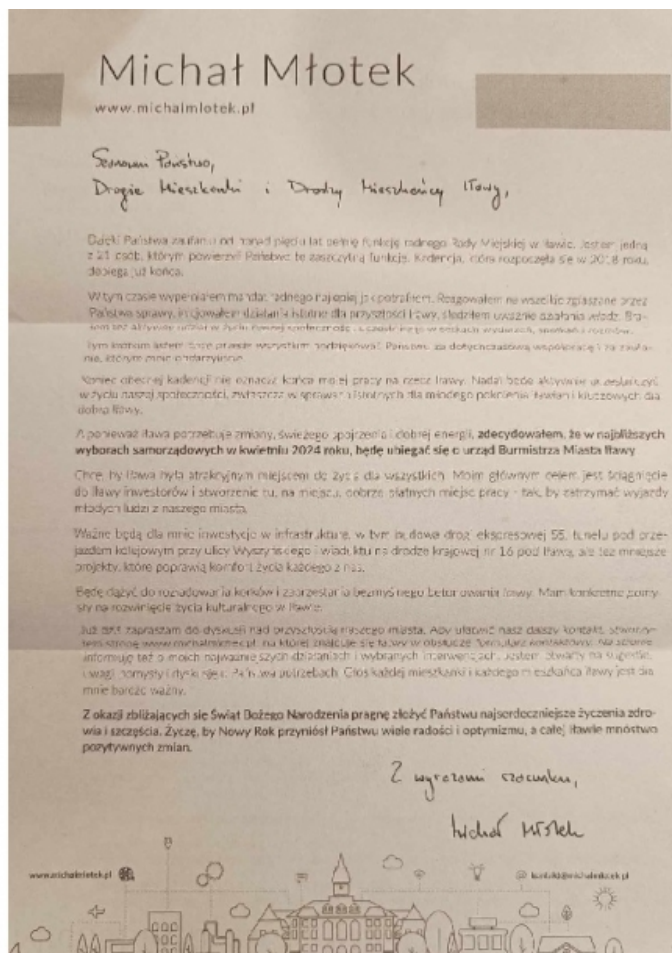 Michał Młotek
www.michalmlotek.pl
Szanowni Państwo,
Drogie Mieszkanki i Drodzy Mieszkańcy Iławy,
Dzięki Państwa zaufaniu od ponad pięciu lat pełnię funkcję radnego Rady Miejskiej w Iławie. Jestem jedną
z 21 osób, którym powierzyli Państwo tę zaszczytną funkcję. Kadencja, która rozpoczęła się w 2018 roku,
dobiega już końca.
W tym czasie wypełniałem mandat radnego najlepiej jak potrafiłem. Reagowałem na wszelkie zgłaszane przez
Państwa sprawy, inicjowałem działania istotne dla przyszłości Iławy, śledziłem uważnie działania władz. Bra-
łem też aktywny udział w życiu naszej społeczności, uczestnicząc w setkach wydarzeń, spotkań i rozmów.
Tym listem chcę przede wszystkim podziękować Państwu za dotychczasową współpracę i za zaufa-
nie, którym mnie obdarzyliście.
Koniec obecnej kadencji nie oznacza końca mojej pracy na rzecz Iławy. Nadal będę aktywnie uczestniczyć
w życiu naszej społeczności, zwłaszcza w sprawach istotnych dla młodego pokolenia iławian i kluczowych dla
dobra Iławy.
A ponieważ Iława potrzebuje zmiany, świeżego spojrzenia i dobrej energii, zdecydowałem, że w najbliższych
wyborach samorządowych w kwietniu 2024 roku, będę ubiegać się o urząd Burmistrza Miasta Iławy
Chcę, by Iława była atrakcyjnym miejscem do życia dla wszystkich. Moim głównym celem jest ściągnięcie
do Iławy inwestorów i stworzenie tu, na miejscu, dobrze płatnych miejsc pracy - tak, by zatrzymać wyjazdy
młodych ludzi z naszego miasta.
Ważne będą dla mnie inwestycje w infrastrukturę, w tym budowa drogi ekspresowej S5, tunelu pod prze-
jazdem kolejowym przy ulicy Wyszyńskiego i wiaduktu na drodze krajowej nr 16 pod Iławą, ale też mniejsze
projekty, które poprawią komfort życia każdego z nas.
Będę dążyć do rozładowania korków i zaprzestania bezmyślnego betonowania Iławy. Mam konkretne pomy-
sły na rozwinięcie życia kulturalnego w Iławie.
Już dziś zapraszam do dyskusji nad przyszłością naszego miasta. Aby ułatwić nasz dalszy kontakt, stworzy-
łem stronę www.michalmlotek.pl, na której znajduje się łatwy w obsłudze formularz kontaktowy. Na stronie
informuję też o moich najważniejszych działaniach i wybranych interwencjach. Jestem otwarty na sugestie,
uwagi, pomysły i dyskusję o Państwa potrzebach. Głos każdej mieszkanki i każdego mieszkańca Iławy jest dla
mnie bardzo ważny.
Z okazji zbliżających się Świąt Bożego Narodzenia pragnę złożyć Państwu najserdeczniejsze życzenia zdro-
wia i szczęścia. Życzę, by Nowy Rok przyniósł Państwu wiele radości i optymizmu, a całej Iławie mnóstwo
pozytywnych zmian.
Z wyrazami szacunku,
Michał Młotek
www.michalmlotek.pl
kontakt@michalmlotek.pl